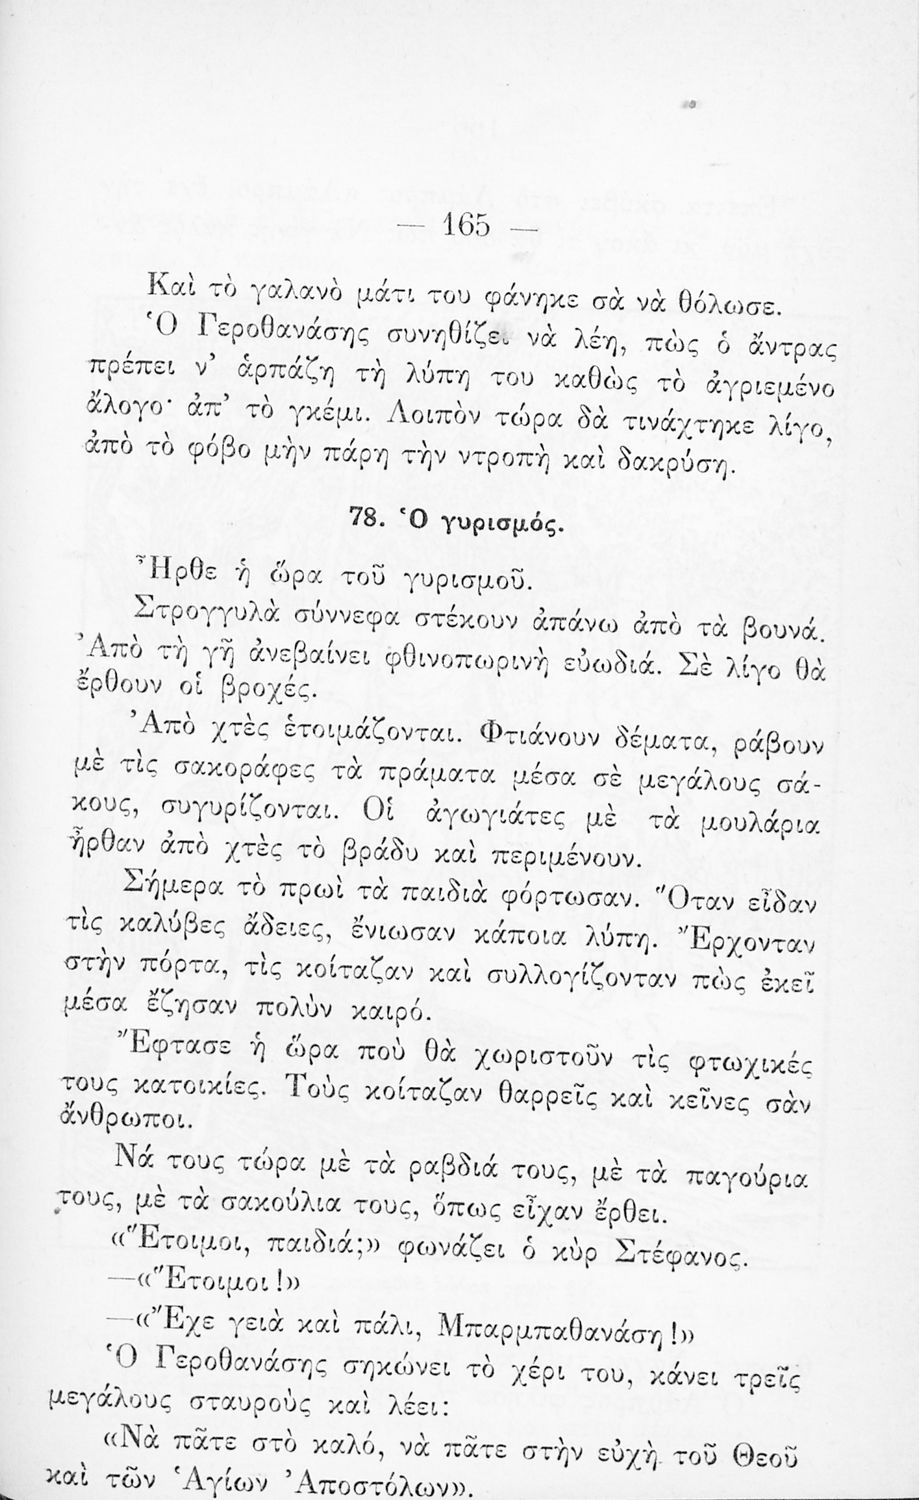 — 165 —
Καὶ τὸ γαλανὸ μάτι του φάνηκε σὰ νὰ θόλωσε.
Ὁ Γεροθανάσης συνηθίζει νὰ λέη, πὼς ὁ ἄντρας
πρέπει ν’ ἁρπάζη τὴ λύπη του καθὼς τὸ ἀγριεμένο
ἄλογο· ἀπ’ τὸ γκέμι. Λοιπὸν τώρα δὰ τινάχτηκε λίγο,
ἀπὸ τὸ φόβο μὴν πάρη τὴν ντροπὴ καὶ δακρύση.
78. Ὁ γυρισμός.
Ἦρθε ἡ ὥρα τοῦ γυρισμοῦ.
Στρογγυλὰ σύννεφα στέκουν ἀπάνω ἀπὸ τὰ βουνά.
Ἀπὸ τὴ γῆ ἀνεβαίνει φθινοπωρινὴ εὐωδιά. Σὲ λίγο θὰ
ἔρθουν οἱ βροχές.
Ἀπὸ χτὲς ἑτοιμάζονται. Φτιάνουν δέματα, ράβουν
μὲ τὶς σακοράφες τὰ πράματα μέσα σὲ μεγάλους σά-
κους, συγυρίζονται. Οἱ ἀγωγιάτες μὲ τὰ μουλάρια
ἦρθαν ἀπὸ χτὲς τὸ βράδυ καὶ περιμένουν.
Σήμερα τὸ πρωὶ τὰ παιδιὰ φόρτωσαν. Ὅταν εἶδαν
τὶς καλύβες ἄδειες, ἔνιωσαν κάποια λύπη. Ἔρχονταν
στὴν πόρτα, τὶς κοίταζαν καὶ συλλογίζονταν πὼς ἐκεῖ
μέσα ἔζησαν πολὺν καιρό.
Ἔφτασε ἡ ὥρα ποὺ θὰ χωριστοῦν τὶς φτωχικές
τους κατοικίες. Τοὺς κοίταζαν θαρρεῖς καὶ κεῖνες σὰν
ἄνθρωποι.
Νά τους τώρα μὲ τὰ ραβδιά τους, μὲ τὰ παγούρια
τους, μὲ τὰ σακούλια τους, ὅπως εἶχαν ἔρθει.
«Ἕτοιμοι, παιδιά;» φωνάζει ὁ κὺρ Στέφανος.
—«Ἕτοιμοι!»
—«Ἔχε γειὰ καὶ πάλι, Μπαρμπαθανάση!»
Ὁ Γεροθανάσης σηκώνει τὸ χέρι του, κάνει τρεῖς
μεγάλους σταυροὺς καὶ λέει:
«Νὰ πᾶτε στὸ καλό, νὰ πᾶτε στὴν εὐχὴ τοῦ Θεοῦ
καὶ τῶν Ἁγίων Ἀποστόλων».